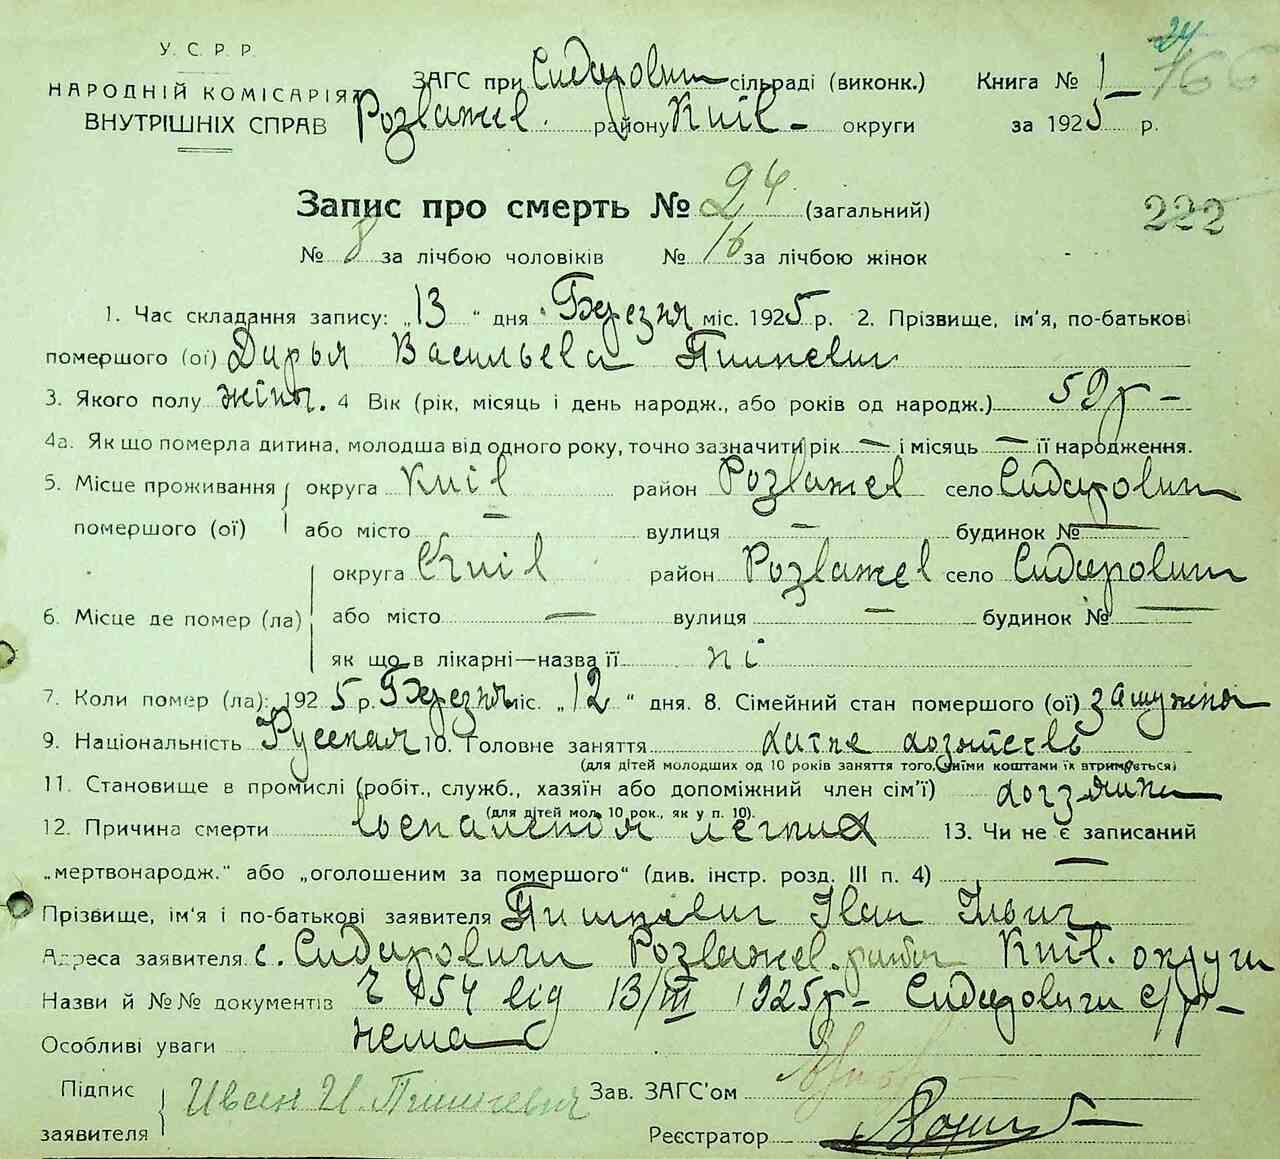 У. С. Р. Р.
НАРОДНІЙ КОМІСАРІЯТ
ВНУТРІШНІХ СПРАВ
ЗАГС при Сидарович сільраді (виконк.)
Розважев. району Киів - округи
Книга № 1
за 1925 р.
24
166
Запис про смерть № 24 (загальний)
222
№ 8 за лічбою чоловіків № 16 за лічбою жінок
1. Час складання запису: „13" дня Березня міс. 1925 р. 2. Прізвище, ім'я, по-батькові
помершого (ої) Дарья Васильева Пишкевич
3. Якого полу жіноч. 4 Вік (рік, місяць і день народж., або років од народж.) 59 р -
4а. Як що померла дитина, молодша від одного року, точно зазначити рік — і місяць — її народження.
5. Місце проживання помершого (ої) округа Киів район Розважев село Сидарович
або місто — вулиця — будинок № —
6. Місце де помер (ла) округа Киів район Розважев село Сидарович
або місто — вулиця — будинок № —
як що в лікарні—назва її ні
7. Коли помер (ла): 1925 р. Березня міс. „12" дня. 8. Сімейний стан помершого (ої) замужня
9. Національність Русская 10. Головне заняття хатне хозяйство
(для дітей молодших од 10 років заняття того, чиїми коштами їх втримується)
11. Становище в промислі (робіт., служб., хазяїн або допоміжний член сім'ї)
(для дітей мол. 10 рок., як у п. 10).
12. Причина смерти воспаления легких 13. Чи не є записаний
„мертвонародж." або „оголошеним за помершого" (див. інстр. розд. III п. 4) —
Прізвище, ім'я і по-батькові заявителя Пишкевич Іван Ільич
Адреса заявителя с. Сидаровичи Розважев. району Киів. округи
Назви й №№ документів № 54 від 13/III 1925 р - Сидаровичи с/р -
Особливі уваги нема
Підпис заявителя Иван И. Пишкевич
Зав. ЗАГС'ом
Реєстратор